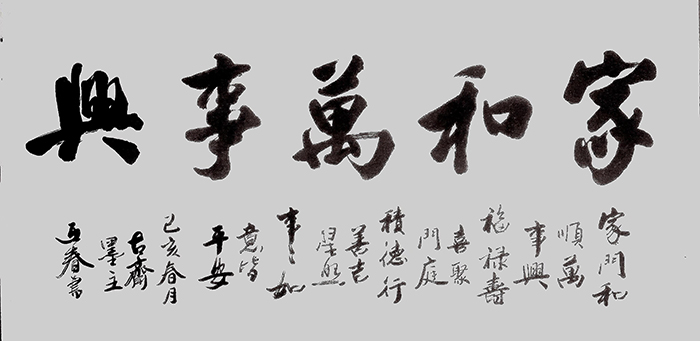 家和萬事興
家門和
順萬
事興
福祿壽
喜聚
門庭
積德行
善吉
星照
事如
意皆
平安
己亥春月
古齋
墨主